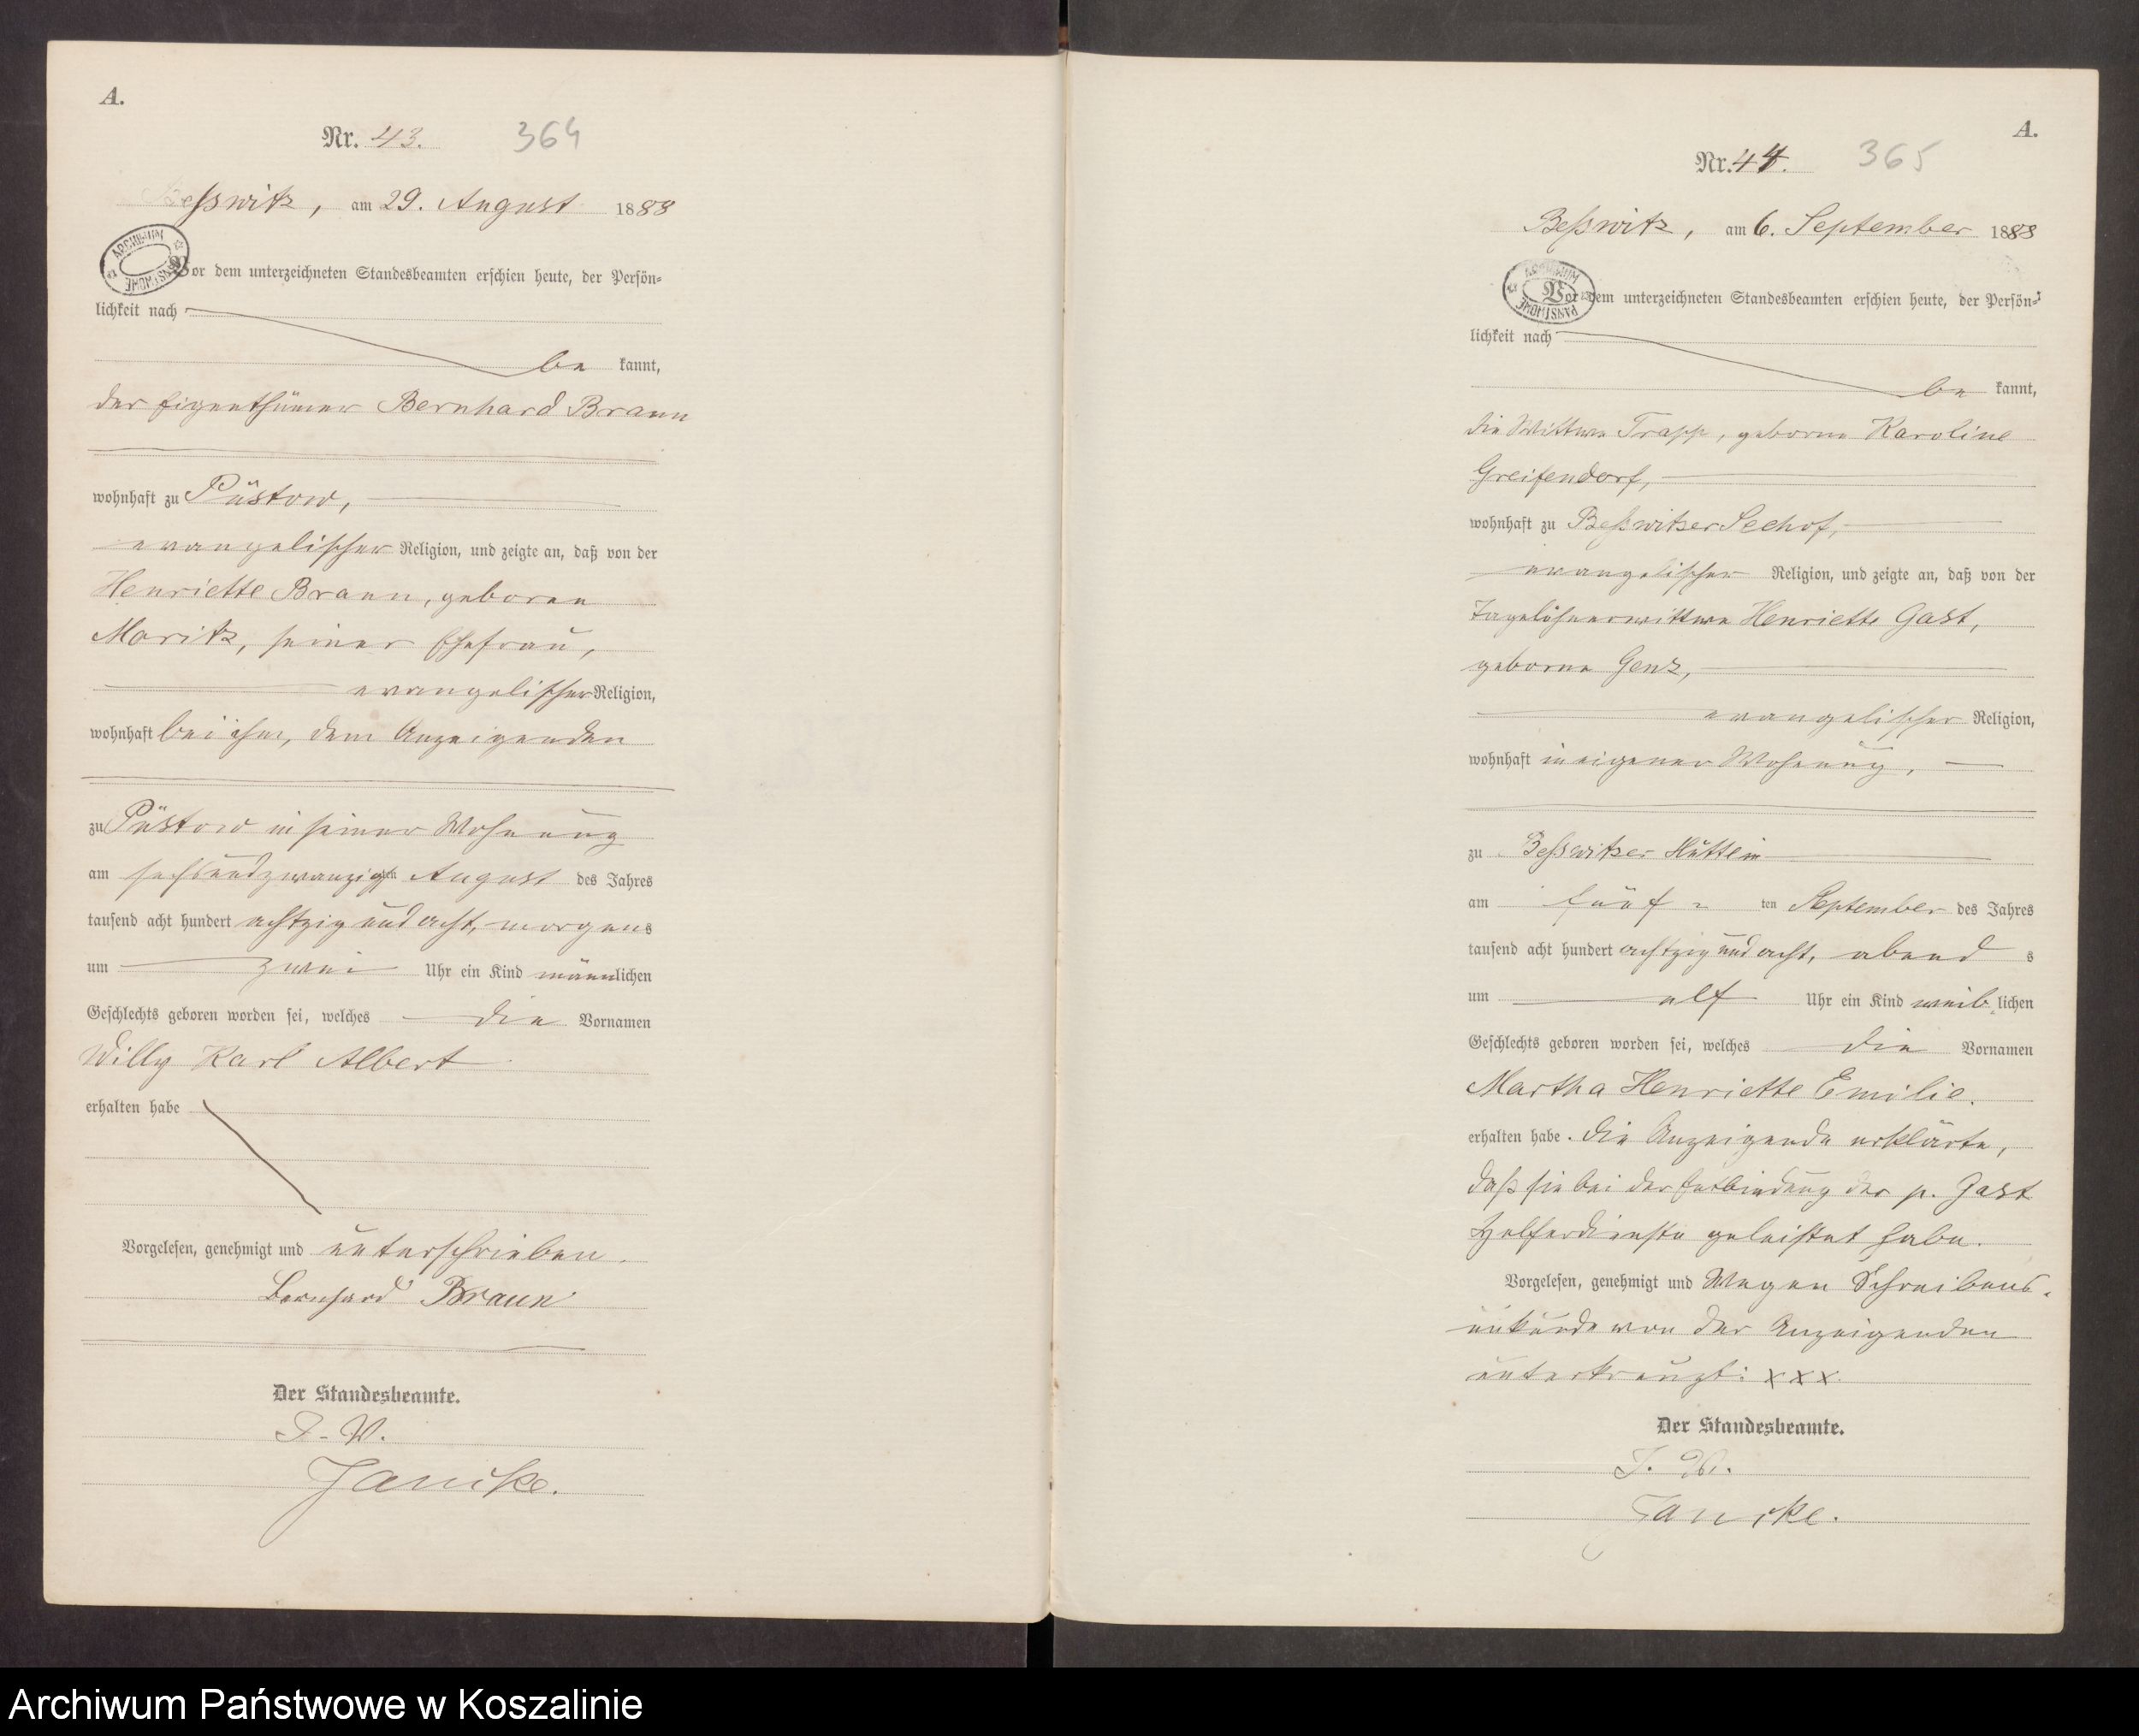 A.
Nr. 43. 364
Beßwitz, am 29. August 1888
ARCHIWUM PAŃSTWOWE
Vor dem unterzeichneten Standesbeamten erschien heute, der Persön=
lichkeit nach
be kannt,
der Eigenthümer Bernhard Braun
wohnhaft zu Püstow,
evangelischer Religion, und zeigte an, daß von der
Henriette Braun, geboren
Moritz, seiner Ehefrau,
evangelischer Religion,
wohnhaft bei ihm, dem Anzeigenden
zu Püstow in seiner Wohnung
am sechsundzwanzigsten August des Jahres
tausend acht hundert achtzig und acht, morgens
um zwei Uhr ein Kind männlichen
Geschlechts geboren worden sei, welches die Vornamen
Willy Karl Albert
erhalten habe
Vorgelesen, genehmigt und unterschrieben.
Bernhard Braun
Der Standesbeamte.
I. V.
Jancke.
A.
Nr. 44. 365
Beßwitz, am 6. September 1888
ARCHIWUM PAŃSTWOWE
Vor dem unterzeichneten Standesbeamten erschien heute, der Persön=
lichkeit nach
be kannt,
die Wittwe Trapp, geborne Karoline
Greifendorf,
wohnhaft zu Beßwitzer Seehof,
evangelischer Religion, und zeigte an, daß von der
Tagelöhnerwittwe Henriette Gast,
geborne Genz,
evangelischer Religion,
wohnhaft in eigener Wohnung,
zu Beßwitzer Hütten
am fünf = ten September des Jahres
tausend acht hundert achtzig und acht, abend s
um elf Uhr ein Kind weib lichen
Geschlechts geboren worden sei, welches die Vornamen
Martha Henriette Emilie.
erhalten habe. Die Anzeigende erklärte,
daß sie bei der Entbindung der p. Gast
Helferdienste geleistet habe.
Vorgelesen, genehmigt und Wegen Schreibens-
unkunde von der Anzeigenden
unterkreuzt: xxx.
Der Standesbeamte.
I. V.
Jancke.
Archiwum Państwowe w Koszalinie